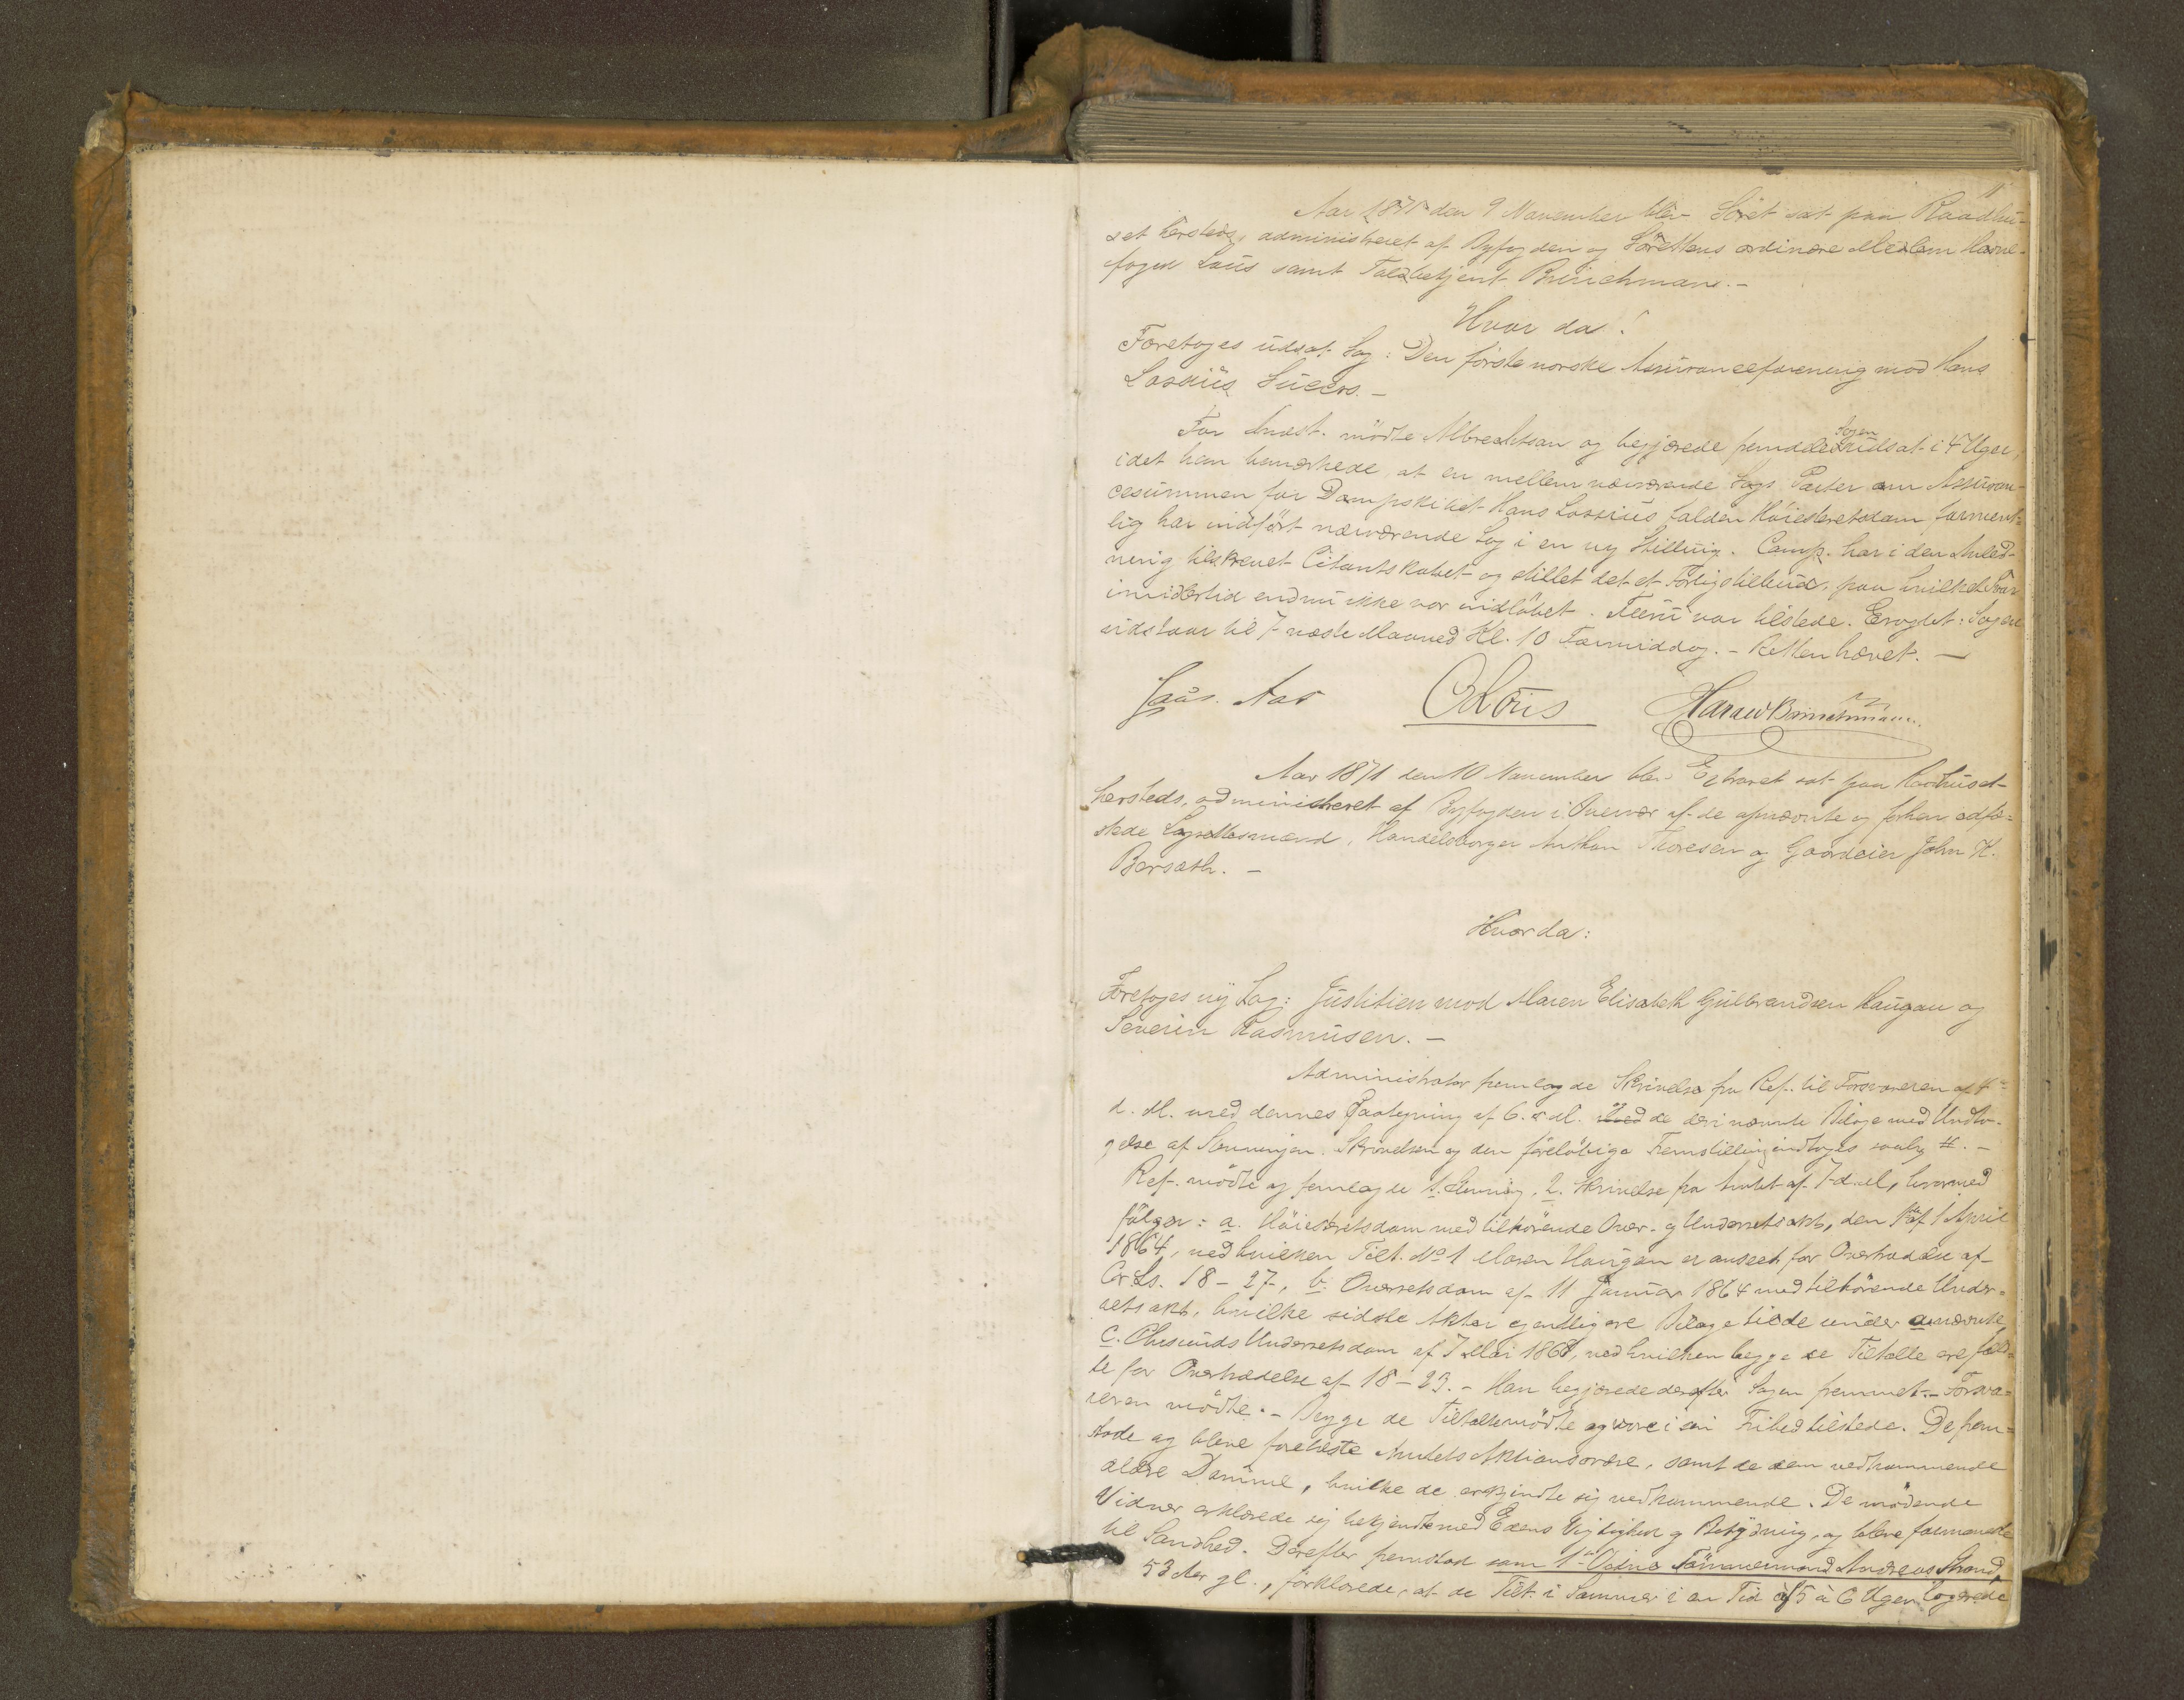 1
Aar 1871 den 9 November blev Söret sat paa Raadhu-
set hersteds, administreret af Byfogden og Sörettens ordinære Medlem Havne-
foged Loüs samt Toldbetjent Brinchmann.-
Hvor da!
Foretoges udsat Sag: Den første norske Assuranceforening mod Hans
Lossius Succrs.-
For Indst. mödte Albrechtsen og begjærede fremdeles Sagen udsat i 4 Uger,
idet han bemærkede, at en mellem nærværende Sags Parter om Assuran-
cesummen for Dampskibet Hans Lossius falden Höiesteretsdom forment-
lig har indfört nærværende Sag i en ny Stilling. Comp. har i den Anled-
ning tilskrevet Citantskabet og stillet det et Forligstilbud, paa hvilket Svar
imidlertid endnu ikke var indlöbet. Fleru var tilstede. Eragtet: Sagen
udstaar til 7 næste Maaned Kl. 10 Formiddag. - Retten hævet. -
Jaus. Aas OLoüs Harald Brinchmann.
Aar 1871 den 10 November blev Extraret sat paa Raadhuset
hersteds, administreret af Byfogden i Overvær af de opnævnte og forhen edfæ=
stede Lagrettesmænd, Handelsborger Anthon Thoresen og Gaardeier John K.
Barsæth. -
Hvorda:
Foretoges ny Sag: Justitien mod Maren Elisabeth Gulbrandsen Haugan og
Severin Rasmusen. -
Administrator fremlagde Skrivelse fra Ref. til Forsvareren af 4de
d. M. med dennes Paategning af 6. d. M. Med de deri nævnte Bilage med Undta-
gelse af Stevningen. Skrivelsen og den foreløbige Fremstilling indtages saalr. #. -
Ref. mödte og fremlagde 1. Stevning, 2. Skrivelse fra Amtet af 7 d. M., hvormed
fölger: a. Höiesteretsdom med tilhörende Over- og Underretsakt, den förste af 1 April
1864, ved hvilken Tilt. No 1 Maren Haugan er anseet for Overtrædelse af
Cr. Ls. 18 - 27, b. Overretsdom af 11 Januar 1864 med tilhörende Under-
retsakt, hvilke sidste Akter egentligere Bilage til de under a nævnte,
c. Christiansunds Underretsdom af 7 Mai 1868, ved hvilken begge de Tiltalte ere fæld-
te for Overtrædelse af 18 - 23. - Han begjærede derefter Sagen fremmet. - Forsva=
reren mödte. - Begge de Tiltalte mödte og vare i sin Frihed tilstede. De frem=
stode og bleve forelæste Amtets Aktionsordre, samt de dem vedkommende
ældre Domme, hvilke de erkjendte sig vedkommende. De mödende
Vidner erklærede sig bekjendt med Edens Vigtighed og Betydning, og bleve formanede
til Sandhed. Derefter fremstod som 1ste Vidne Tömmermand Andreas Strand,
53 Aar gl., forklarede, at de Tilt. i Sommer i en Tid af 5 à 6 Uger logerede